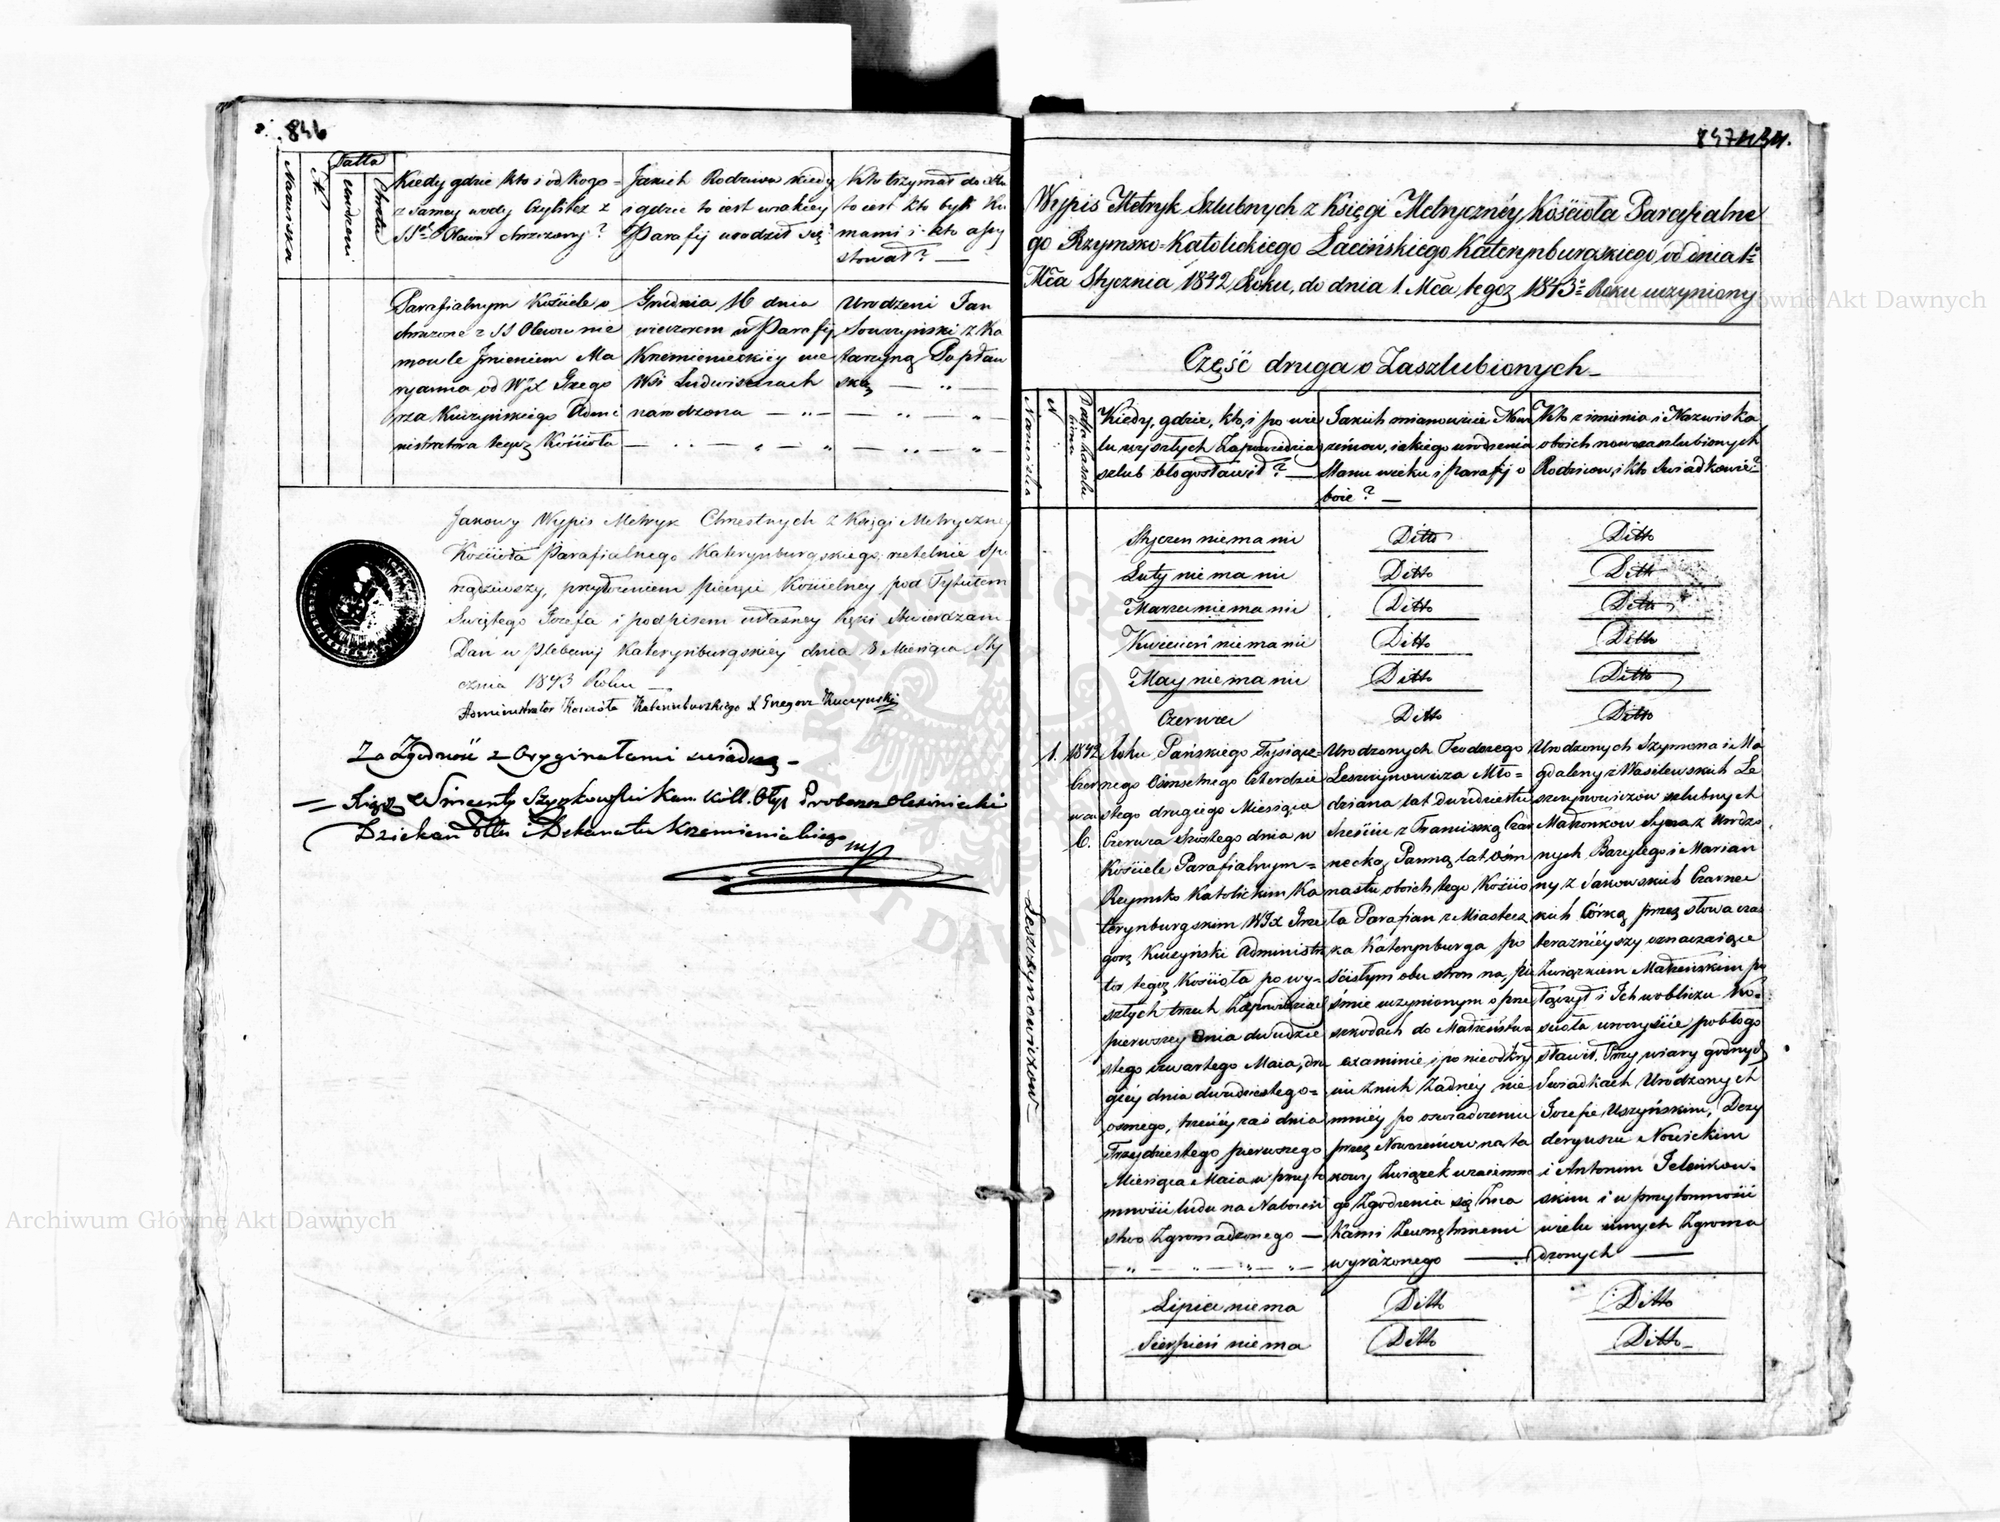 846
Nazwiska
N.
Datta
urodzeni
Chrztu
Kiedy gdzie kto i od kogo
z samey wody Czyli też z
SS. Olewa chrzczony?
Jakich Rodziców kiedy
i gdzie to iest wiakiey
Parafij urodził się?
Kto trzymał do
to iest kto byli Ku
mami i kto assy
stował?
Parafialnym Kościele o
chrzczone z SS Olewu nie
mowle Jmieniem Ma
ryanna od WJX Grzego
rza Kuczyńskiego Admi
nistratora tegoż Kościoła
Grudnia 16 dnia
wieczorem w Parafij
Krzemienieckiey we
Wsi Ludwiszczach
narodzona
Urodzeni Jan
Sowczyński z Ka
tarzyną Popław
ską
Jakowy Wypis Metryk Chrestnych z Księgi Metryczney
Kościoła Parafialnego Katerynburgskiego, rzetelnie Spo
rządziwszy, przyłożeniem pieczęci Kościelney pod Tytułem
Swiętego Jozefa i podpisem własney Ręki stwierdzam
Dań w Plebanij Katerynburgskiéy dnia 8 Miesiąca Sty
cznia 1843 Roku
Administrator Kościoła Katerynburskiego X Grzegorz Kuczynski
Za Zgodność z Oryginałami świadczę
Xiądz Wincenty Szynkowski Kan. Koll. Ołyc Proboszcz Olexiniecki
Dziekan Pttu i Dekanatu Krzemienieckiego
mp
847
434.
Wypis Metryk Szlubnych z Księgi Metrycznéy Kościoła Parafialne
go Rzymsko-Katolickiego Łacińskiego Katerynburgskiego od dnia 1º
Mca Stycznia 1842 Roku, do dnia 1. Mca tegoż 1843º Roku uczyniony
Część druga o Zaszlubionych
Nazwiska
N
Datta Zaszlu
bienia
Kiedy, gdzie, kto, i po wie
lu wyszłych Zapowiedziach
szlub błogosławił?
Jakich mianowicie Now
żeńców, iakiego urodzenia
Stanu wieku i parafij o
boie?
Kto z imienia i Nazwiska
oboich nowozaszlubionych
Rodzicow, i kto Swiadkowie?
Styczen niema nic
Ditto
Ditto
Luty niema nic
Ditto
Ditto
Marzec niema nic
Ditto
Ditto
Kwiecień niema nic
Ditto
Ditto
May niema nic
Ditto
Ditto
Czerwiec
Ditto
Ditto
1.
Leszczynowiczow
1842
Czer
wca
6.
Roku Pańskiego Tysiącz
nego Osmsetnego Czterdzie
stego drugiego Miesiąca
Czerwca szóstego dnia w
Kościele Parafialnym
Rzymsko Katolickim Ka
terynburgskim WJX Grze
gorz Kuczyński Administra
tor tegoż Kościoła po wy
szłych trzech Zapowiedziach
pierwszey dnia dwudzie
stego czwartego Maia, dru
giéy dnia dwudziestego
osmego, trzeciéy zaś dnia
Trzydziestego pierwszego
Miesiąca Maia w przyto
mności ludu na Nabożeń
stwo Zgromadzonego
Urodzonych Teodorego
Leszczynowicza Mło
dziana lat dwudziestu
sześciu z Franciszką Czar
necką Panną lat ośm
nastu oboich tego Kościo
ła Parafian z Miastecz
ka Katerynburga po
ścisłym obu stron na pi
śmie uczynionym o prze
szkodach do Małżeństwa
examinie i po nieodkry
ciu z nich żadnéy nie
mniéy po oświadczeniu
przez Nowożeńcow na ta
kowy Związek wzaiemne
go Zgodzenia się Zna
kami Zewnętrznemi
wyrażonego
Urodzonych Szymona i Ma
gdaleny z Wasilewskich Le
szczynowiczow szlubnych
Małżonkow Syna z Urodzo
nych Bazylego i Marian
ny z Jakowskich Czarnec
kich Córką przez słowa czas
teraznieyszy oznaczaiące
Związkiem Małżeńskim po
łączył i Jch w obliczu Ko
scioła uroczyście pobłogo
sławił. Przy wiary godnych
Swiadkach Urodzonych
Jozefie Uszyńskim, Dezy
deryuszu Nowickim
i Antonim Jeleńkow
skim i w przytomności
wielu innych Zgroma
dzonych
Lipiec niema
Ditto
Ditto
Sierpień niema
Ditto
Ditto
Archiwum Główne Akt Dawnych
Archiwum Główne Akt Dawnych